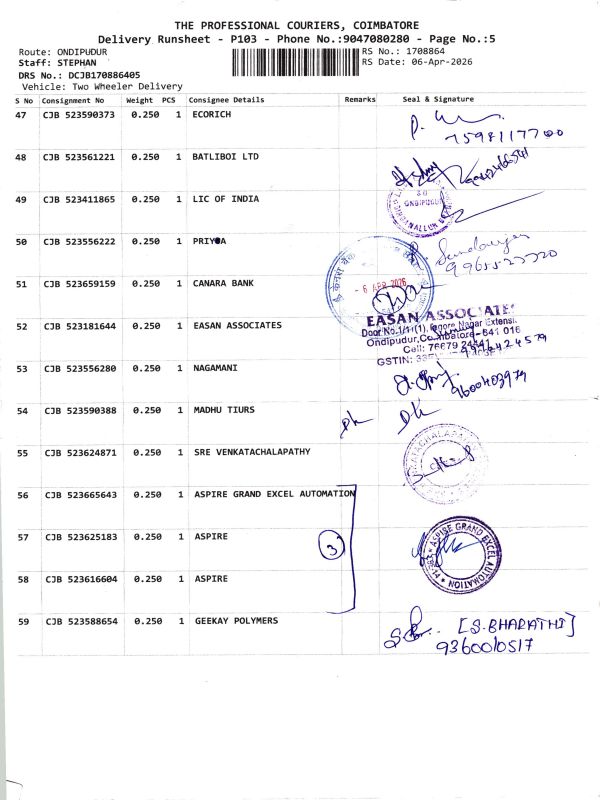 THE PROFESSIONAL COURIERS, COIMBATORE
Delivery Runsheet - P103 - Phone No.:9047080280 - Page No.:5
Route: ONDIPUDUR
RS No.: 1708864
Staff: STEPHAN
RS Date: 06-Apr-2026
DRS No.: DCJB170886405
Vehicle: Two Wheeler Delivery
S No Consignment No Weight PCS Consignee Details Remarks Seal & Signature
47 CJB 523590373 0.250 1 ECORICH
7598117700
48 CJB 523561221 0.250 1 BATLIBOI LTD
49 CJB 523411865 0.250 1 LIC OF INDIA
ONDIPUDUR
50 CJB 523556222 0.250 1 PRIYA
51 CJB 523659159 0.250 1 CANARA BANK
- 6 APR 2026
52 CJB 523181644 0.250 1 EASAN ASSOCIATES
EASAN ASSOCIATES
Ondipudur, Coimbatore-641 016
Cell: 76679
GSTIN:
53 CJB 523556280 0.250 1 NAGAMANI
9600403979
54 CJB 523590388 0.250 1 MADHU TIURS
55 CJB 523624871 0.250 1 SRE VENKATACHALAPATHY
56 CJB 523665643 0.250 1 ASPIRE GRAND EXCEL AUTOMATION
57 CJB 523625183 0.250 1 ASPIRE
3
ASPIRE GRAND EXCEL AUTOMATION
58 CJB 523616604 0.250 1 ASPIRE
59 CJB 523588654 0.250 1 GEEKAY POLYMERS
[S.BHARATHI]
9360010517